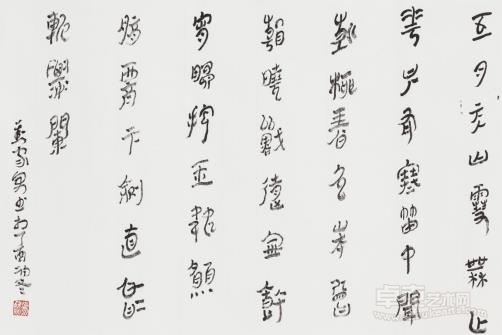 五月天山雪無
華只有寒笛中聞
折柳春色未曾
看曉戰隨金鼓
宵眠抱玉鞍願
將腰下劍直為
斬樓蘭
丁酉初冬
卓克艺术网